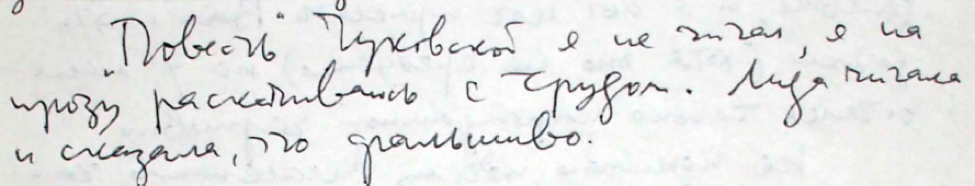 "Повесть" Чуковской я не читал, я на
прозу раскачиваюсь с трудом. Лида читала
и сказала, что фальшиво.